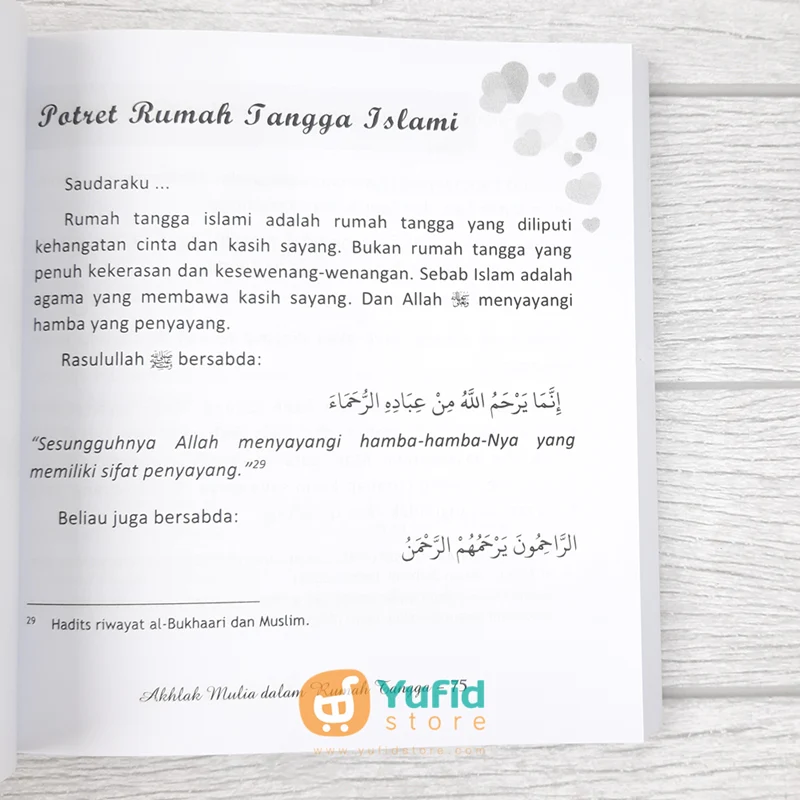 Potret Rumah Tangga Islami
Saudaraku ...
Rumah tangga islami adalah rumah tangga yang diliputi
kehangatan cinta dan kasih sayang. Bukan rumah tangga yang
penuh kekerasan dan kesewenang-wenangan. Sebab Islam adalah
agama yang membawa kasih sayang. Dan Allah ﷻ menyayangi
hamba yang penyayang.
Rasulullah ﷺ bersabda:
إِنَّمَا يَرْحَمُ اللَّهُ مِنْ عِبَادِهِ الرُّحَمَاءَ
“Sesungguhnya Allah menyayangi hamba-hamba-Nya yang
memiliki sifat penyayang.”29
Beliau juga bersabda:
الرَّاحِمُونَ يَرْحَمُهُمْ الرَّحْمَنُ
29 Hadits riwayat al-Bukhaari dan Muslim.
Akhlak Mulia dalam Rumah Tangga 75
Yufid
store
www.yufidstore.com